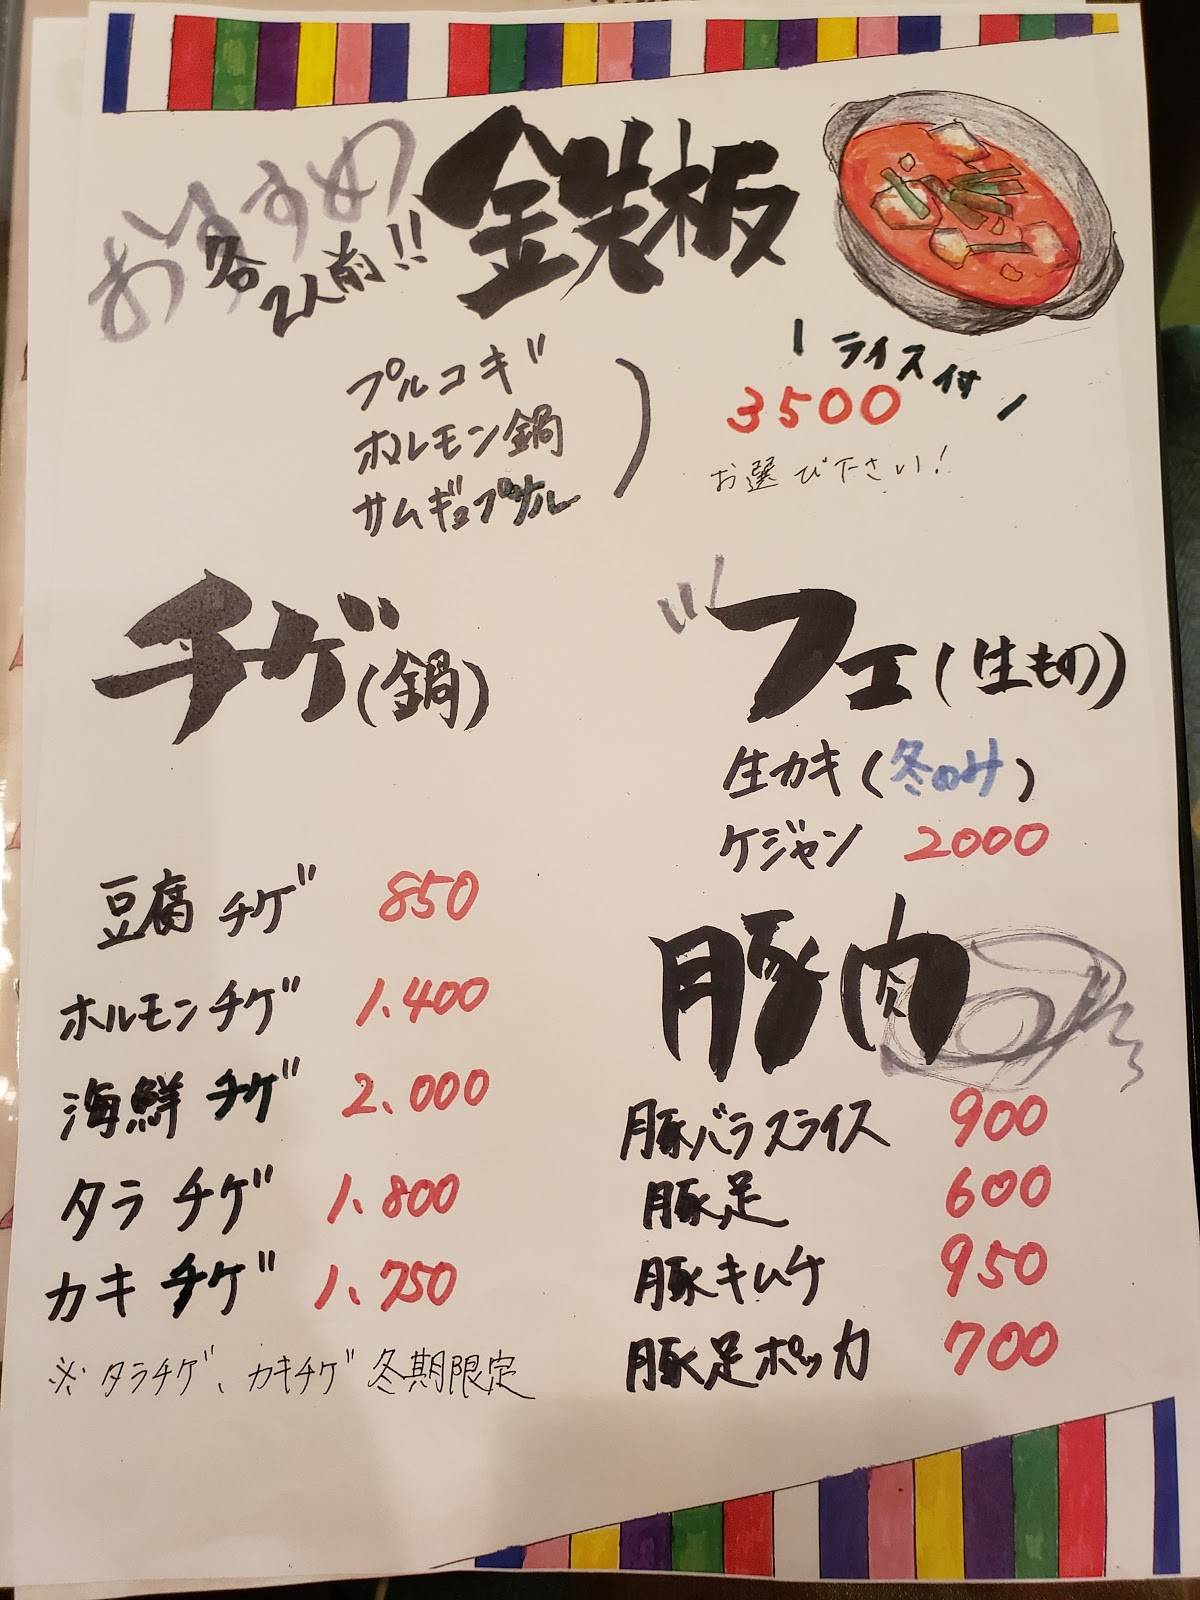 おすすめ
各2人前!!
鉄板
プルコギ
ホルモン鍋
サムギョプサル
ライス付
3500
お選び下さい!
チゲ(鍋)
豆腐チゲ 850
ホルモンチゲ 1.400
海鮮チゲ 2.000
タラチゲ 1.800
カキチゲ 1.750
※タラチゲ、カキチゲ 冬期限定
フェ(生もの)
生カキ(冬のみ)
ケジャン 2000
豚肉
豚バラスライス 900
豚足 600
豚キムチ 950
豚足ポッカ 700